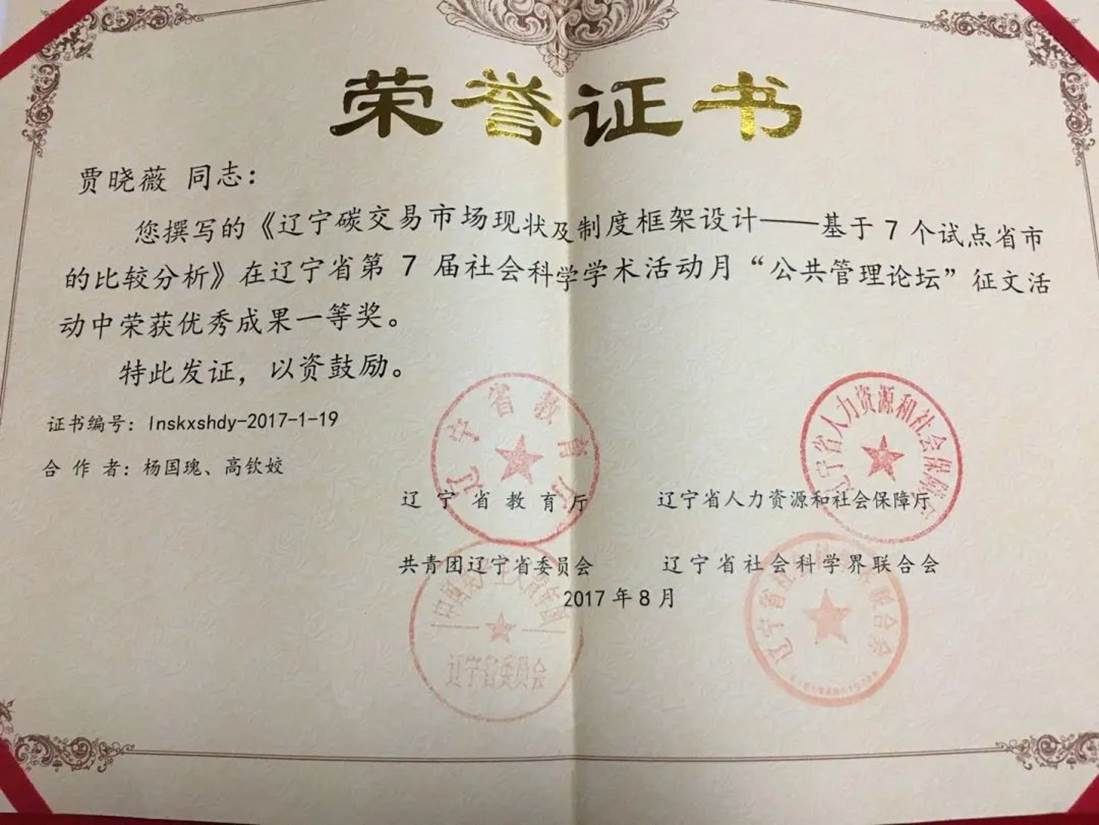 荣誉证书
贾晓薇 同志：
您撰写的《辽宁碳交易市场现状及制度框架设计——基于 7 个试点省市
的比较分析》在辽宁省第 7 届社会科学学术活动月“公共管理论坛”征文活
动中荣获优秀成果一等奖。
特此发证，以资鼓励。
证书编号：lnskxshdy-2017-1-19
合 作 者：杨国瑰、高钦姣
辽宁省教育厅
辽宁省人力资源和社会保障厅
辽 宁 省 教 育 厅
辽宁省人力资源和社会保障厅
共青团辽宁省委员会
辽宁省社会科学界联合会
2017 年 8 月
辽宁省委员会
辽宁省社会科学界联合会